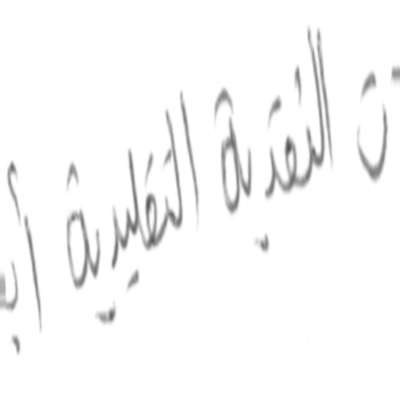 النقدية التقليدية